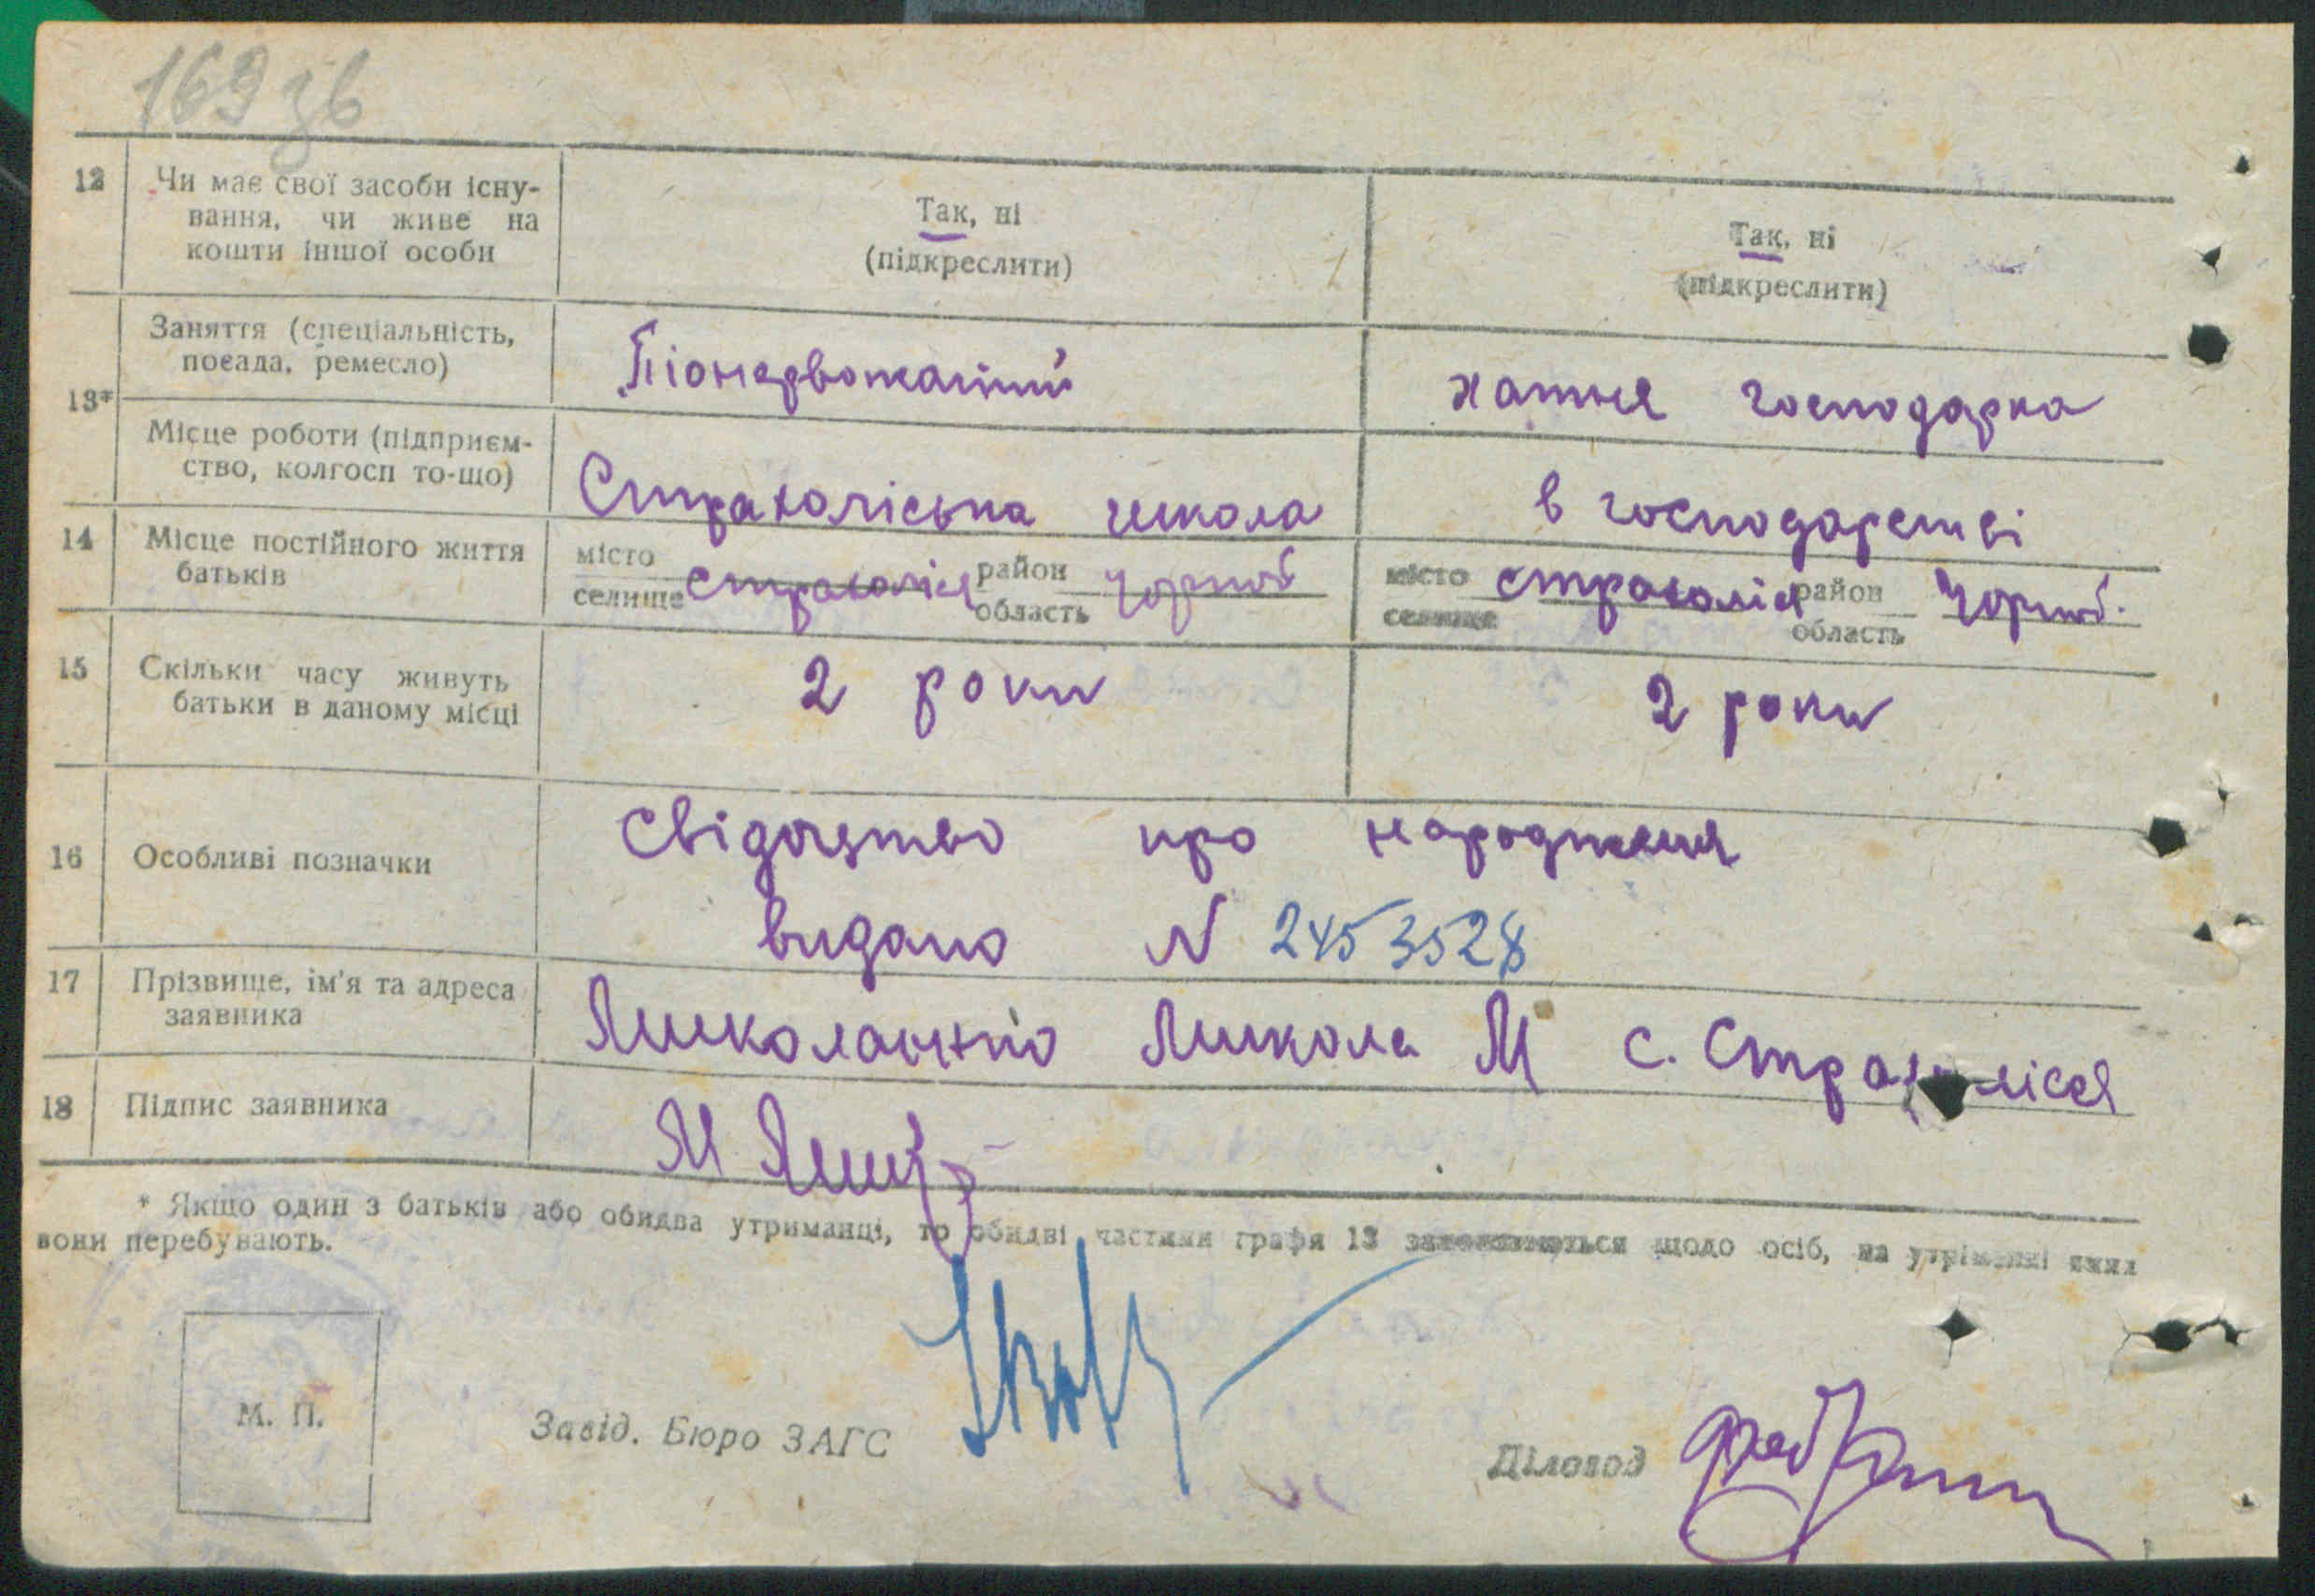 169 зв
12 Чи має свої засоби існу-
вання, чи живе на
кошти іншої особи
Так, ні
(підкреслити)
Так, ні
(підкреслити)
13*
Заняття (спеціальність,
посада, ремесло)
Піонервожатий
хатня господарка
Місце роботи (підприєм-
ство, колгосп то-що)
Страхоліська школа
в господарстві
14 Місце постійного життя
батьків
місто
селище
Страхоліся
район
область
Чорноб
місто
селище
Страхоліся
район
область
Чорноб.
15 Скільки часу живуть
батьки в даному місці
2 роки
2 роки
16 Особливі позначки
Свідоцтво про народження
видано N 2453528
17 Прізвище, ім'я та адреса
заявника
Миколаєнко Микола М с. Страхолісся
18 Підпис заявника
М
* Якщо один з батьків або обидва утриманці, то обидві частини графи 13 заповнюються щодо осіб, на утриманні яких
вони перебувають.
М. П.
Завід. Бюро ЗАГС
Діловод